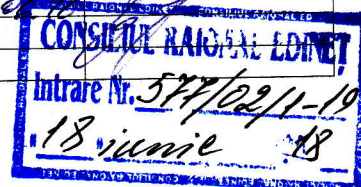 CONSILIUL RAIONAL EDINEȚ
Intrare Nr. 577/02/1-19
"18" iunie 18